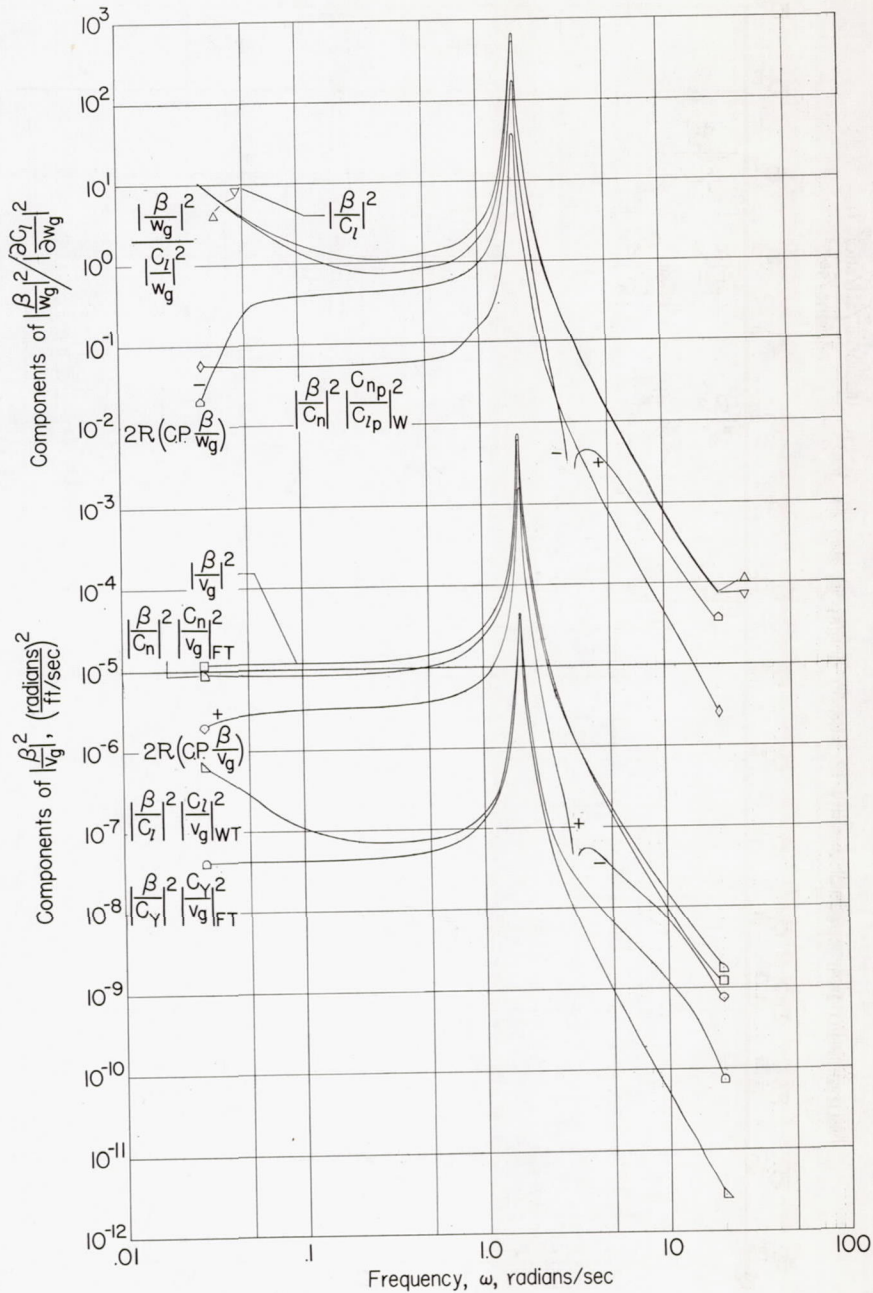 10³
10²
10¹
10⁰
10⁻¹
10⁻²
10⁻³
10⁻⁴
10⁻⁵
10⁻⁶
10⁻⁷
10⁻⁸
10⁻⁹
10⁻¹⁰
10⁻¹¹
10⁻¹²
Components of |β/w_g|²/|∂C_l/∂w_g|²
Components of |β/v_g|², (radians/ft/sec)²
|β/w_g|²/|C_l/w_g|²
|β/C_l|²
−
2R(C.P. β/w_g)
|β/C_n|² |C_{n_p}/C_{l_p}|²_W
−
+
|β/v_g|²
|β/C_n|² |C_n/v_g|²_FT
+
2R(C.P. β/v_g)
|β/C_l|² |C_l/v_g|²_WT
|β/C_Y|² |C_Y/v_g|²_FT
+
−
.01
.1
1.0
10
100
Frequency, ω, radians/sec